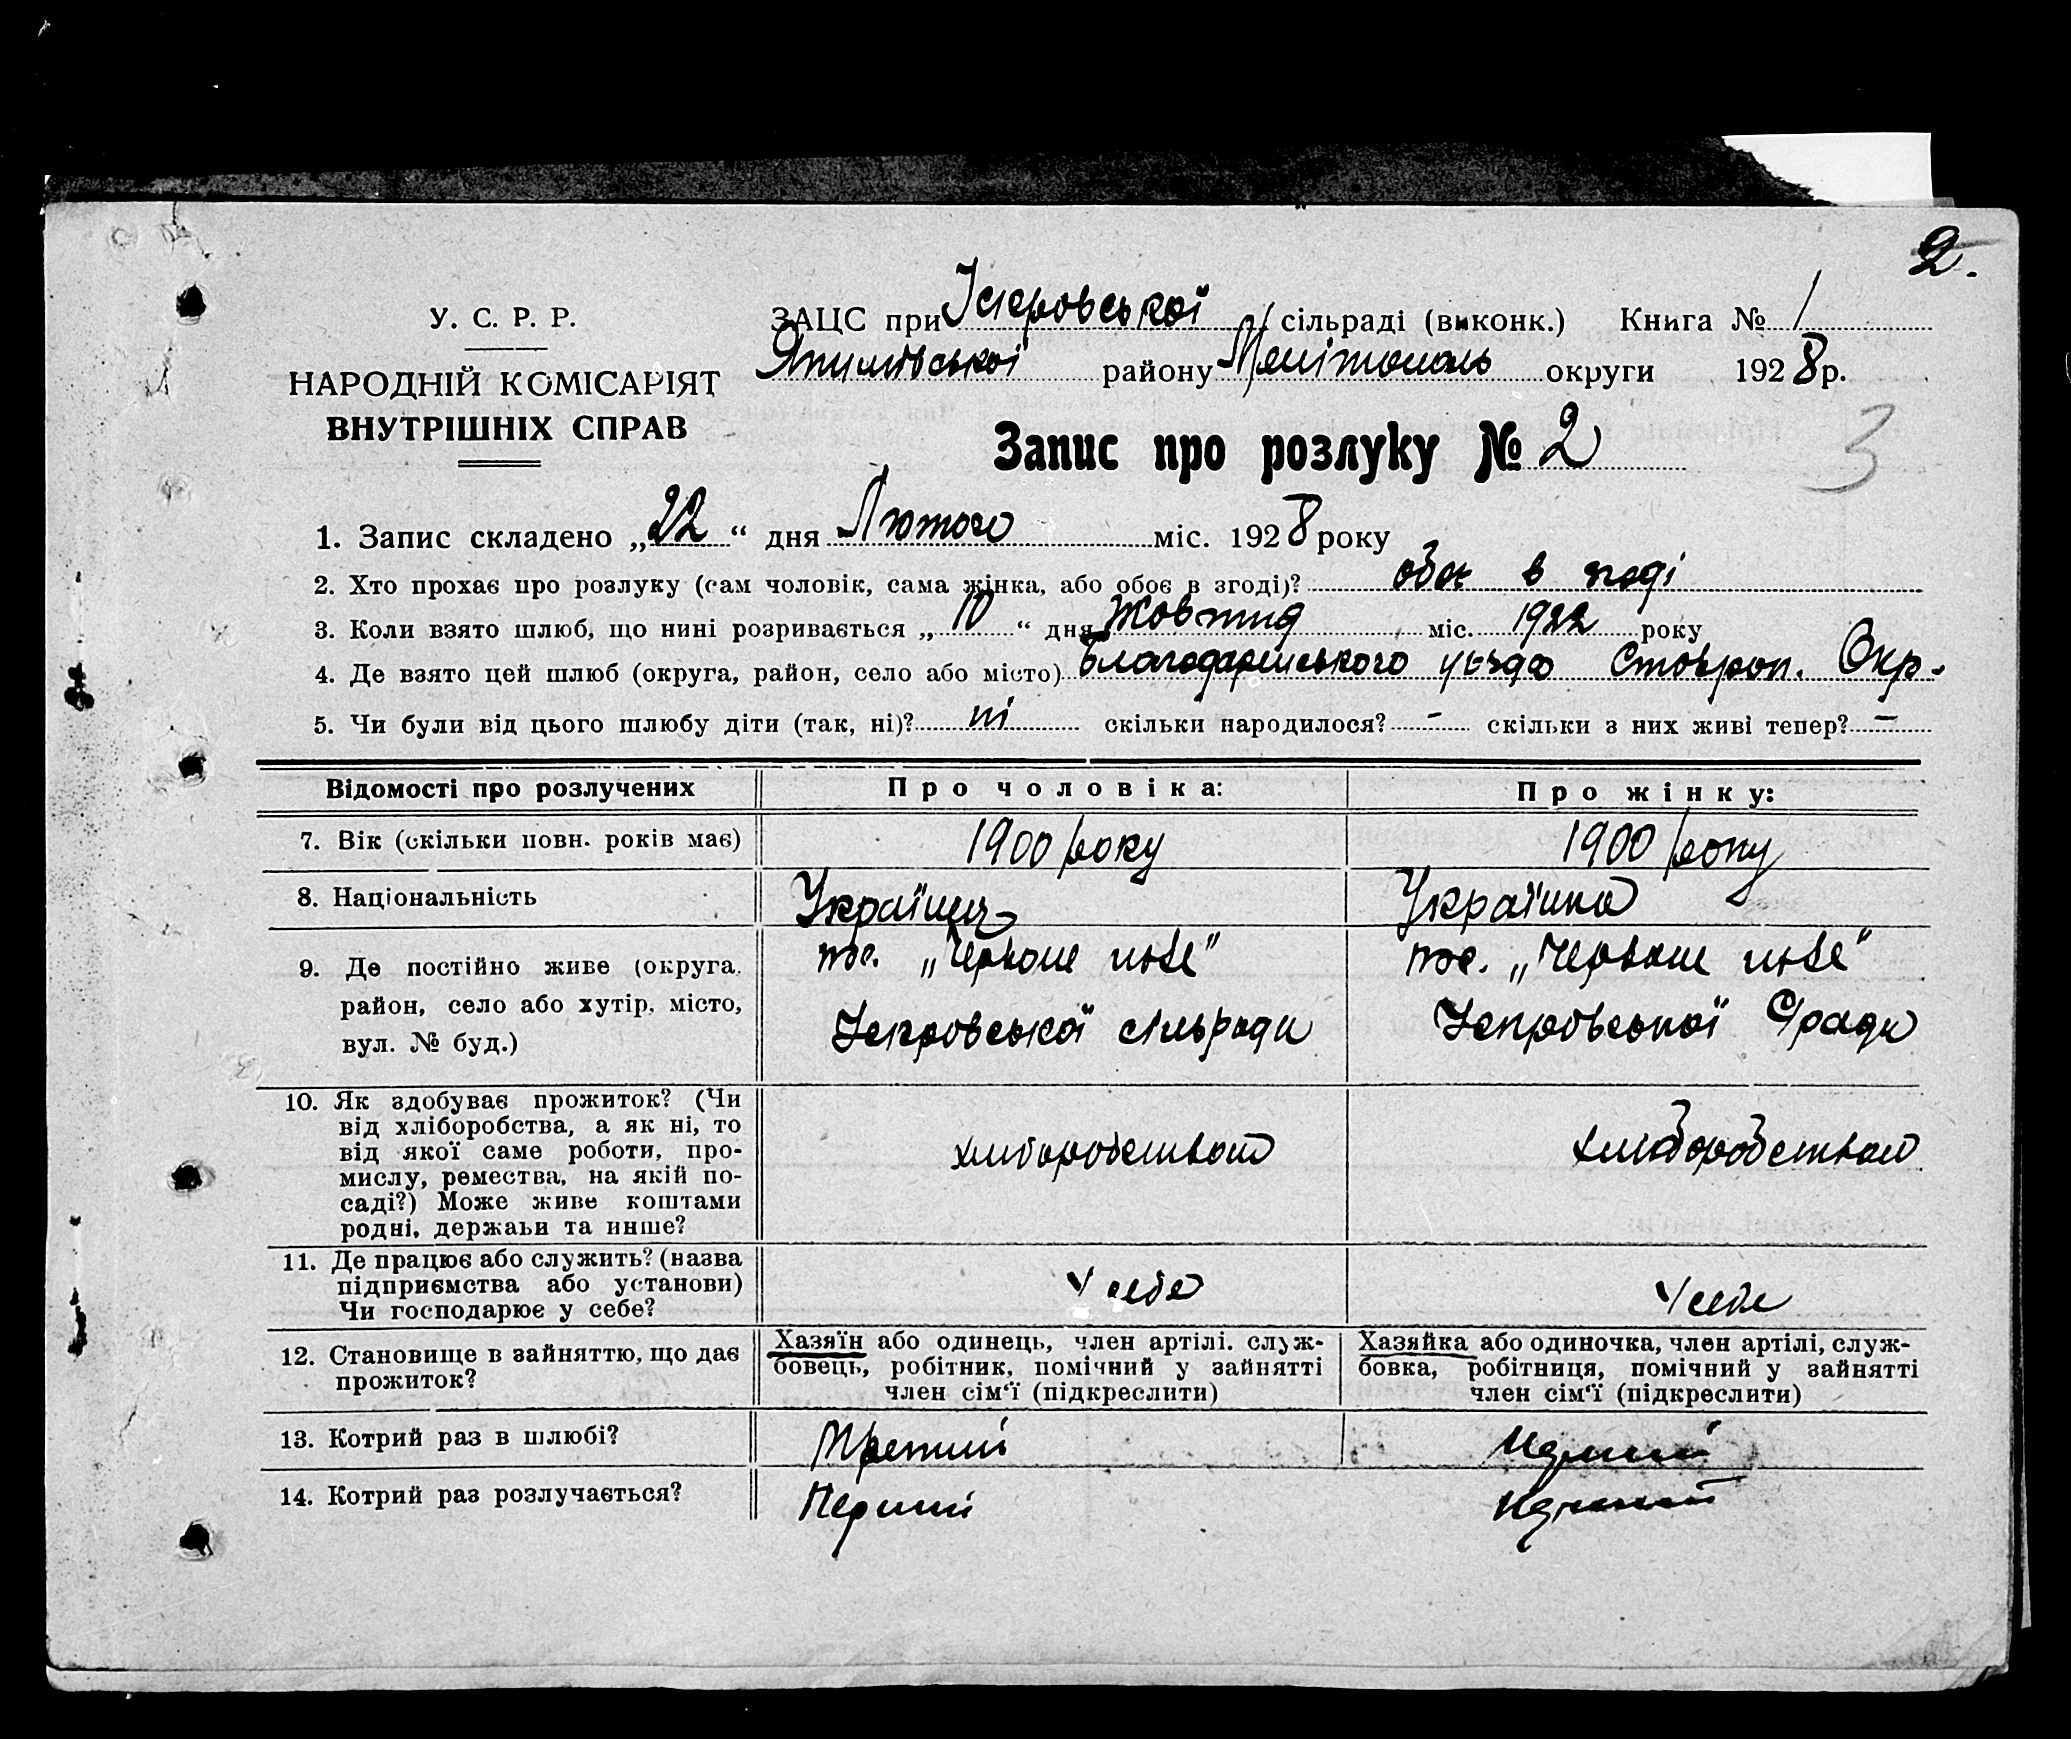 2.
У. С. Р. Р.
НАРОДНІЙ КОМІСАРІЯТ
ВНУТРІШНІХ СПРАВ
ЗАЦС при Іскровської сільраді (виконк.) Книга № 1
району Мелітополь округи 1928 р.
Запис про розлуку № 2
3
1. Запис складено „22“ дня Лютого міс. 1928 року
2. Хто прохає про розлуку (сам чоловік, сама жінка, або обоє в згоді)? обоє в згоді
3. Коли взято шлюб, що нині розривається „10“ дня Жовтня міс. 1922 року
4. Де взято цей шлюб (округа, район, село або місто) Благодарського уъзда Ставроп. Окр.
5. Чи були від цього шлюбу діти (так, ні)? ні скільки народилося? - скільки з них живі тепер? -
Відомості про розлучених Про чоловіка: Про жінку:
7. Вік (скільки повн. років має) 1900 року 1900 року
8. Національність Українец Українка
9. Де постійно живе (округа, пос. „Червоне поле“ пос. „Червоне поле“
район, село або хутір, місто, Іскровської сільради Іскровської С/ради
вул. № буд.)
10. Як здобуває прожиток? (Чи
від хліборобства, а як ні, то
від якої саме роботи, про- хліборобством хліборобством
мислу, ремества, на якій по-
саді?) Може живе коштами
родні, держави та инше?
11. Де працює або служить? (назва
підприємства або установи) У себе У себе
Чи господарює у себе?
12. Становище в зайняттю, що дає
прожиток?
Хазяїн або одинець, член артілі. служ-
бовець, робітник, помічний у зайнятті
член сім'ї (підкреслити)
Хазяйка або одиночка, член артілі, служ-
бовка, робітниця, помічний у зайнятті
член сім'ї (підкреслити)
13. Котрий раз в шлюбі? Третий
14. Котрий раз розлучається? Перший